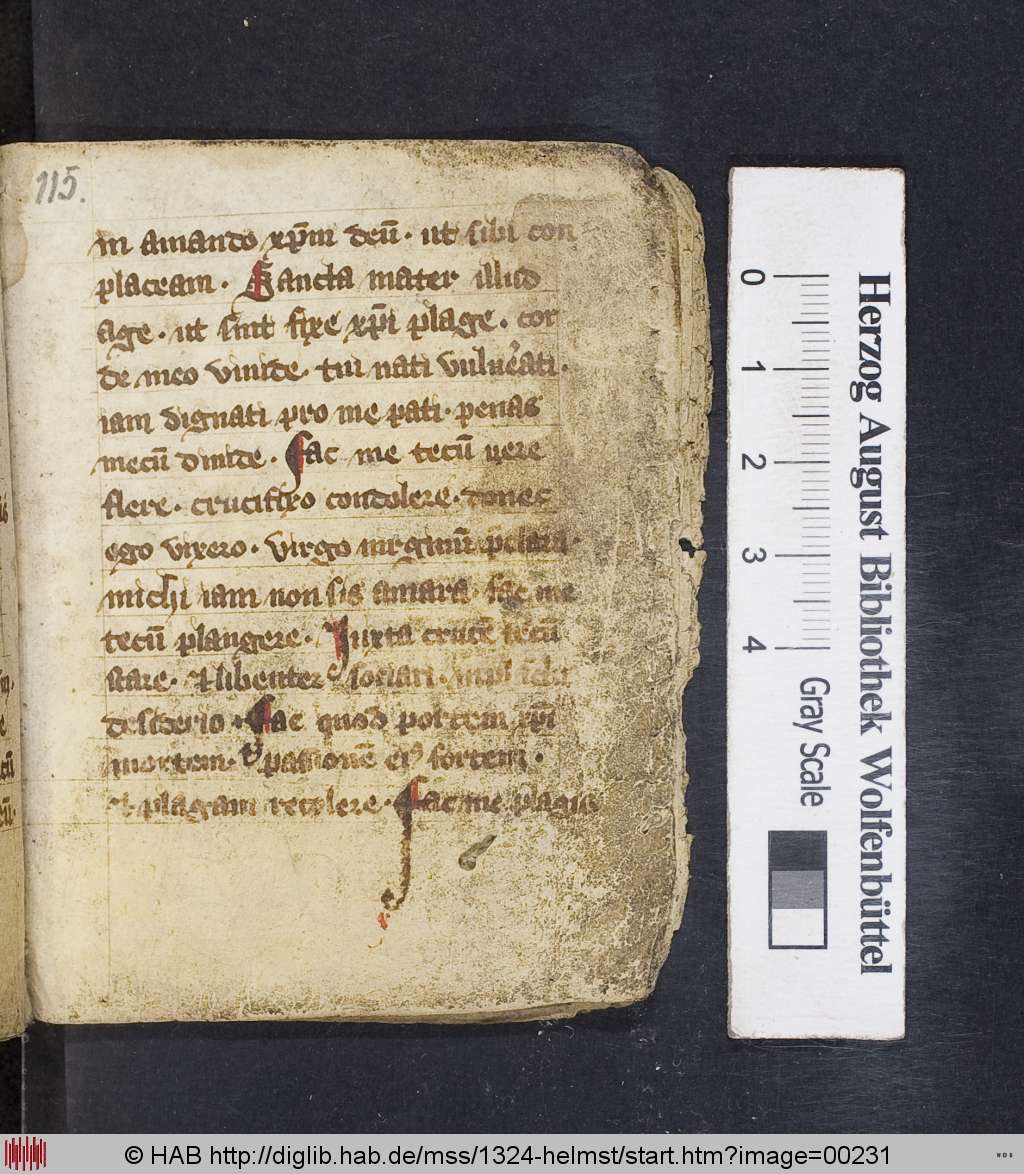 115.
in amando xp̄m deū · ut sibi con
placeam · Sancta mater illud
age · ut sint fixe xp̄i plage · cor
de meo viuide · tui nati vulnerati ·
iam dignati pro me pati · penas
mecū diuide · Fac me tecū uere
flere · crucifixo condolere · donec
ego vixero · virgo uirginū p̄clara ·
michi iam non sis amara · fac me
tecū plangere · Iuxta crucē tecū
stare · & libenter sociari ·
desiderio · Fac quod portem xp̄i
mortem · passionē eiꝰ sortem ·
et plagam recolere · Fac me plagis
0
1
2
3
4
Herzog August Bibliothek Wolfenbüttel
Gray Scale
© HAB http://diglib.hab.de/mss/1324-helmst/start.htm?image=00231